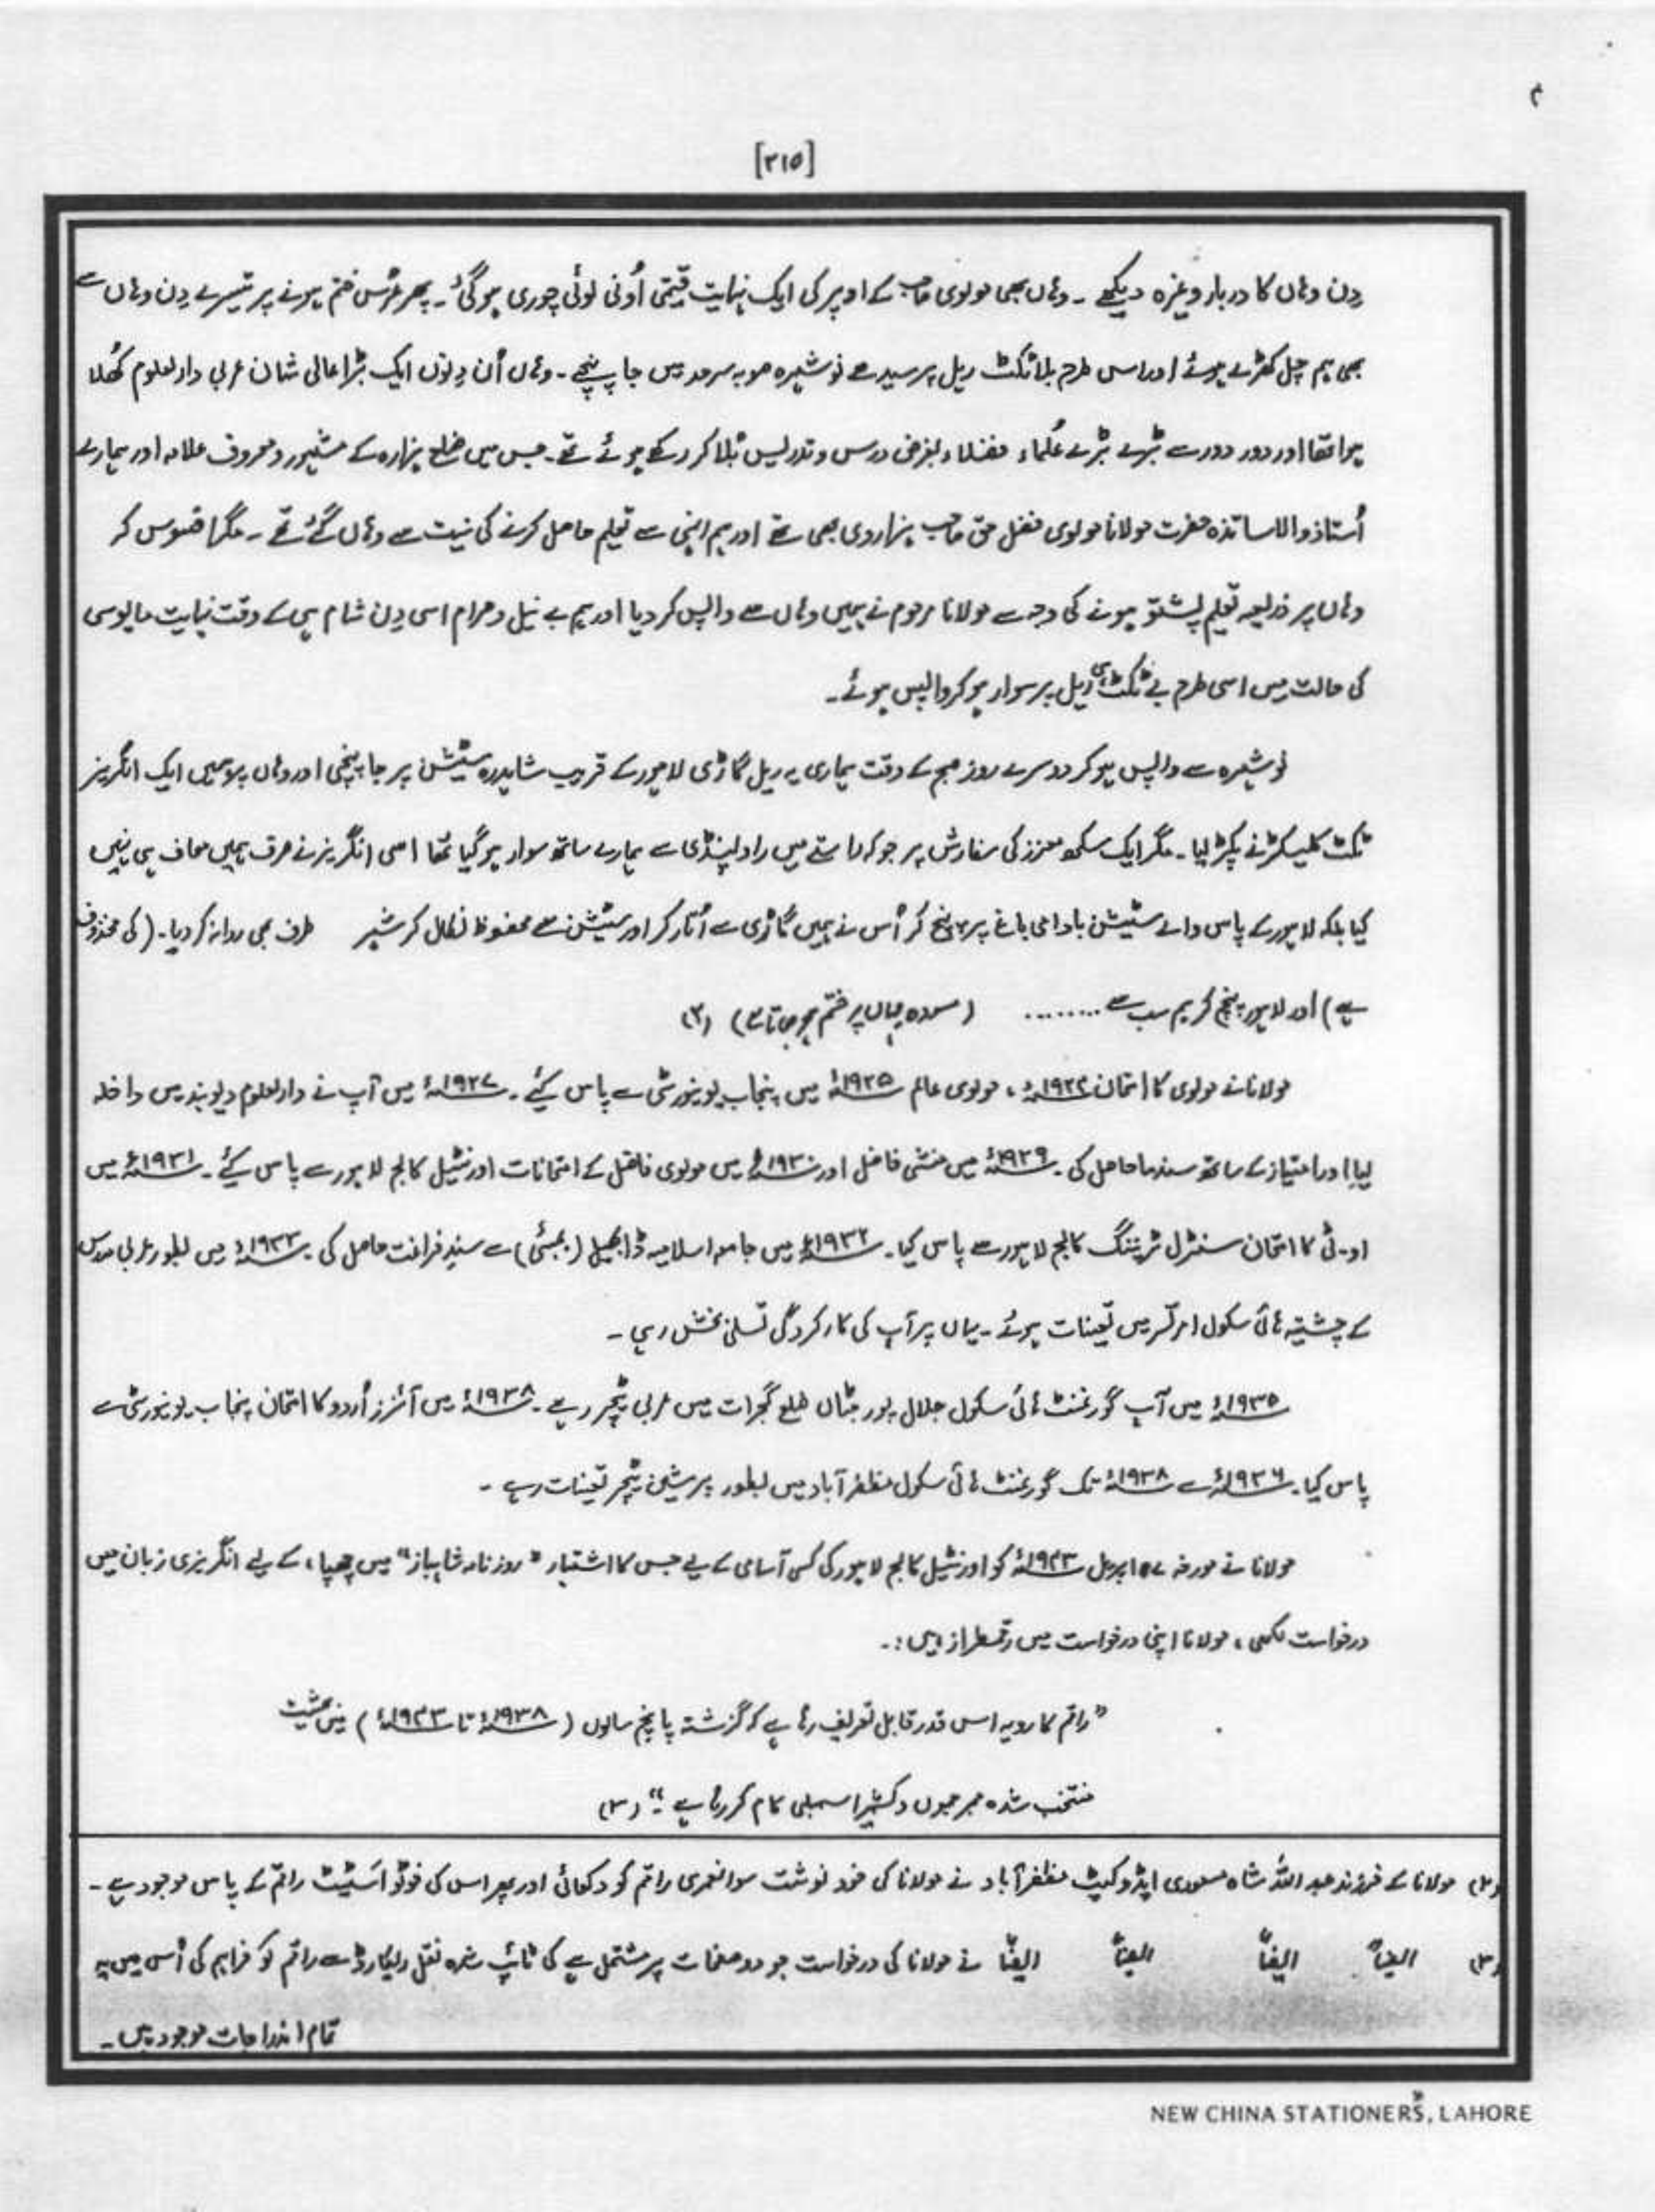 [۳۱۵]
دِن وہاں کا دربار وغیرہ دیکھے ۔ وہاں بھی مولوی صاحب کے اوپر کی ایک نہایت قیمتی اُونی لوئی چوری ہو گئی ۔ پھر عُرس ختم ہونے پر تیسرے دِن وہاں سے
بھی ہم چل کھڑے ہوئے اور اسی طرح بلا ٹکٹ ریل پر سیدھے نوشہرہ صوبہ سرحد میں جا پہنچے ۔ وہاں اُن دِنوں ایک بڑا عالی شان عربی دارلعلوم کھُلا
ہوا تھا اور دور دور سے بڑے بڑے عُلماء فضلاء بغرض درس و تدریس بُلا کر رکھے ہوئے تھے ۔ جس میں ضلع ہزارہ کے مشہور و معروف علامہ اور ہمارے
اُستاذ والاساتذہ حضرت مولانا مولوی فضل حق صاحب ہزاروی بھی تھے اور ہم انہی سے تعلیم حاصل کرنے کی نیت سے وہاں گئے تھے ۔ مگر افسوس کہ
وہاں پر ذریعہ تعلیم پشتو ہونے کی وجہ سے مولانا مرحوم نے ہمیں وہاں سے واپس کر دیا اور ہم بے نیل و مرام اسی دِن شام ہی کے وقت نہایت مایوسی
کی حالت میں اسی طرح بے ٹکٹ ہی ریل پر سوار ہو کر واپس ہوئے ۔
نوشہرہ سے واپس ہو کر دوسرے روز صبح کے وقت ہماری یہ ریل گاڑی لاہور کے قریب شاہدرہ سٹیشن پر جا پہنچی اور وہاں پر ہمیں ایک انگریز
ٹکٹ کلیکٹر نے پکڑ لیا ۔ مگر ایک سکھ معزز کی سفارش پر جو کہ راستے میں راولپنڈی سے ہمارے ساتھ سوار ہو گیا تھا اسی انگریز نے صرف ہمیں معاف ہی نہیں
کیا بلکہ لاہور کے پاس والے سٹیشن بادامی باغ پر پہنچ کر اُس نے ہمیں گاڑی سے اُتار کر اور سٹیشن سے محفوظ نکال کر شہر طرف بھی روانہ کر دیا ۔ (کی محذوف
ہے) اور لاہور پہنچ کر ہم سب سے ........ (مسودہ یہاں پر ختم ہو جاتا ہے) (۲)
مولانا نے مولوی کا امتحان ۱۹۲۴ء ، مولوی عالم ۱۹۲۵ء میں پنجاب یونیورسٹی سے پاس کیئے ۔ ۱۹۲۷ء میں آپ نے دارلعلوم دیوبند میں داخلہ
لیا اور امتیاز کے ساتھ سند حاصل کی ۔ ۱۹۲۹ء میں منشی فاضل اور ۱۹۳۰ء میں مولوی فاضل کے امتحانات اورنٹیل کالج لاہور سے پاس کیئے ۔ ۱۹۳۱ء میں
او ۔ ٹی کا امتحان سنٹرل ٹریننگ کالج لاہور سے پاس کیا ۔ ۱۹۳۲ء میں جامعہ اسلامیہ ڈابھیل (بمبئی) سے سندِ فراغت حاصل کی ۔ ۱۹۳۳ء میں بطور عربی مدرس
کے چشتیہ ہائی سکول امرتسر میں تعینات ہوئے ۔ یہاں پر آپ کی کارکردگی تسلی بخش رہی ۔
۱۹۳۵ء میں آپ گورنمنٹ ہائی سکول جلال پور جٹاں ضلع گجرات میں عربی ٹیچر رہے ۔ ۱۹۳۸ء میں آنرز اُردو کا امتحان پنجاب یونیورسٹی سے
پاس کیا ۔ ۱۹۳۶ء سے ۱۹۳۸ء تک گورنمنٹ ہائی سکول مظفرآباد میں بطور پرشین ٹیچر تعینات رہے ۔
مولانا نے مورخہ ۱۵ اپریل ۱۹۴۳ء کو اورنٹیل کالج لاہور کی کسی آسامی کے لیے جس کا اشتہار "روزنامہ شاہباز" میں چھپا ، کے لیے انگریزی زبان میں
درخواست لکھی ، مولانا اپنی درخواست میں رقمطراز ہیں :۔
"راقم کا رویہ اس قدر قابل تعریف رہا ہے کہ گزشتہ پانچ سالوں (۱۹۳۸ء تا ۱۹۴۳ء) میں بحیثیت
منتخب شدہ ممبر جموں و کشمیر اسمبلی کام کر رہا ہے ۔" (۳)
(۲) مولانا کے فرزند عبد اللہ شاہ مسعودی ایڈوکیٹ مظفرآباد نے مولانا کی خود نوشت سوانعمری راقم کو دکھائی اور پھر اس کی فوٹو اسٹیٹ راقم کے پاس موجود ہے ۔
(۳) ایضاً ایضاً ایضاً ایضاً نے مولانا کی درخواست جو دو صفحات پر مشتمل ہے کی ٹائپ شدہ نقل ریکارڈ سے راقم کو فراہم کی اُس میں یہ
تمام اندراجات موجود ہیں ۔
NEW CHINA STATIONERS, LAHORE